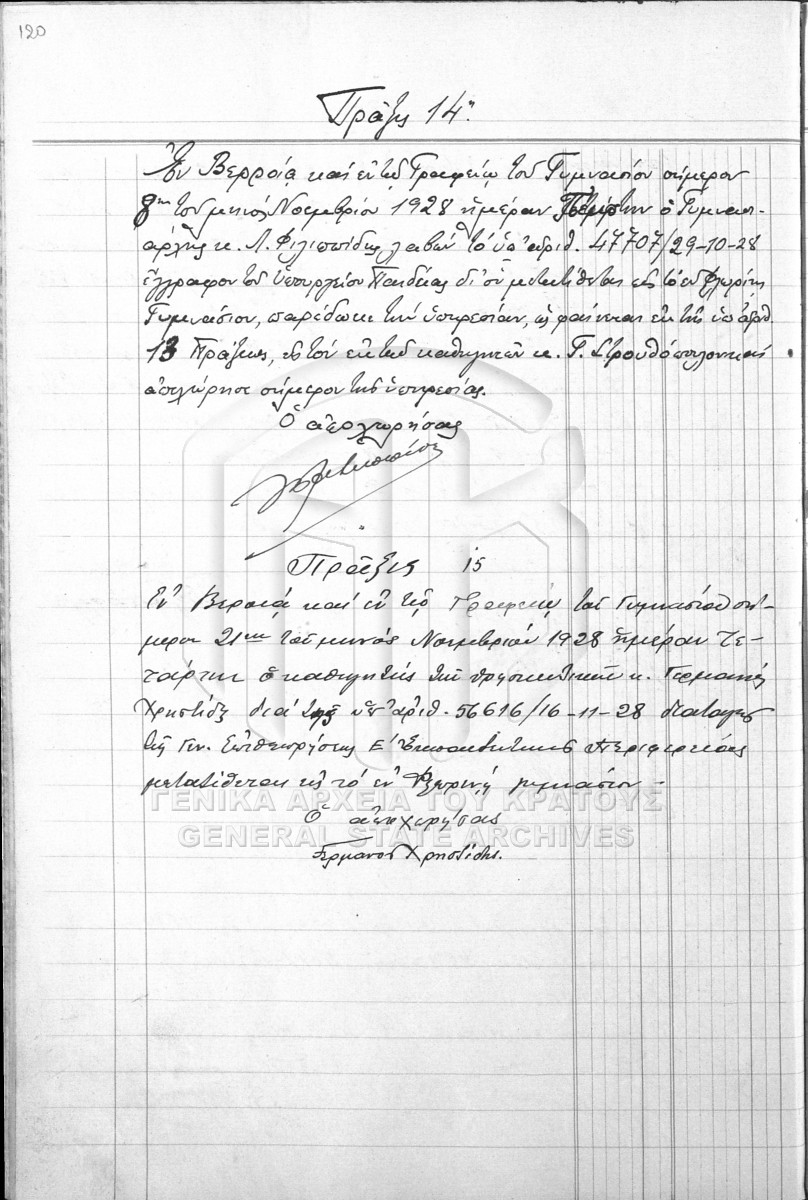 120
Πράξις 14η
Ἐν Βερροίᾳ καὶ ἐν τῷ Γραφείῳ τοῦ Γυμνασίου σήμερον
8ην τοῦ μηνὸς Νοεμβρίου 1928 ἡμέραν Πέμπτην ὁ Γυμνασι-
άρχης κ. Λ. Φιλιππίδης λαβὼν τὸ ὑπ' ἀριθ. 47707/29-10-28
ἔγγραφον τοῦ Ὑπουργείου Παιδείας δι' οὗ μετατίθεται εἰς τὸ ἐν Φλωρίνῃ
Γυμνάσιον, παρέδωκε τὴν ὑπηρεσίαν, ὡς φαίνεται ἐκ τῆς ὑπ' ἀριθ.
13 Πράξεως, εἰς τὸν ἐκ τῶν καθηγητῶν κ. Γ. Στρουθόπουλον καὶ
ἀπεχώρησε σήμερον τῆς ὑπηρεσίας.
Ὁ ἀποχωρήσας
Πράξις 15
Ἐν Βεροίᾳ καὶ ἐν τῷ Γραφείῳ τοῦ Γυμνασίου σή-
μερον 21ην τοῦ μηνὸς Νοεμβρίου 1928 ἡμέραν Τε-
τάρτην ὁ καθηγητὴς τῶν θρησκευτικῶν κ. Γερμανὸς
Χρηστίδης διὰ τῆς ὑπ' ἀριθ. 56616/16-11-28 διαταγῆς
τῆς Γεν. Ἐπιθεωρήσεως Ε' Ἐκπαιδευτικῆς Περιφερείας
μετατίθεται εἰς τὸ ἐν Φλωρίνῃ γυμνάσιον -
ΓΕΝΙΚΑ ΑΡΧΕΙΑ ΤΟΥ ΚΡΑΤΟΥΣ
Ὁ ἀποχωρήσας
GENERAL STATE ARCHIVES
Γερμανὸς Χρηστίδης.